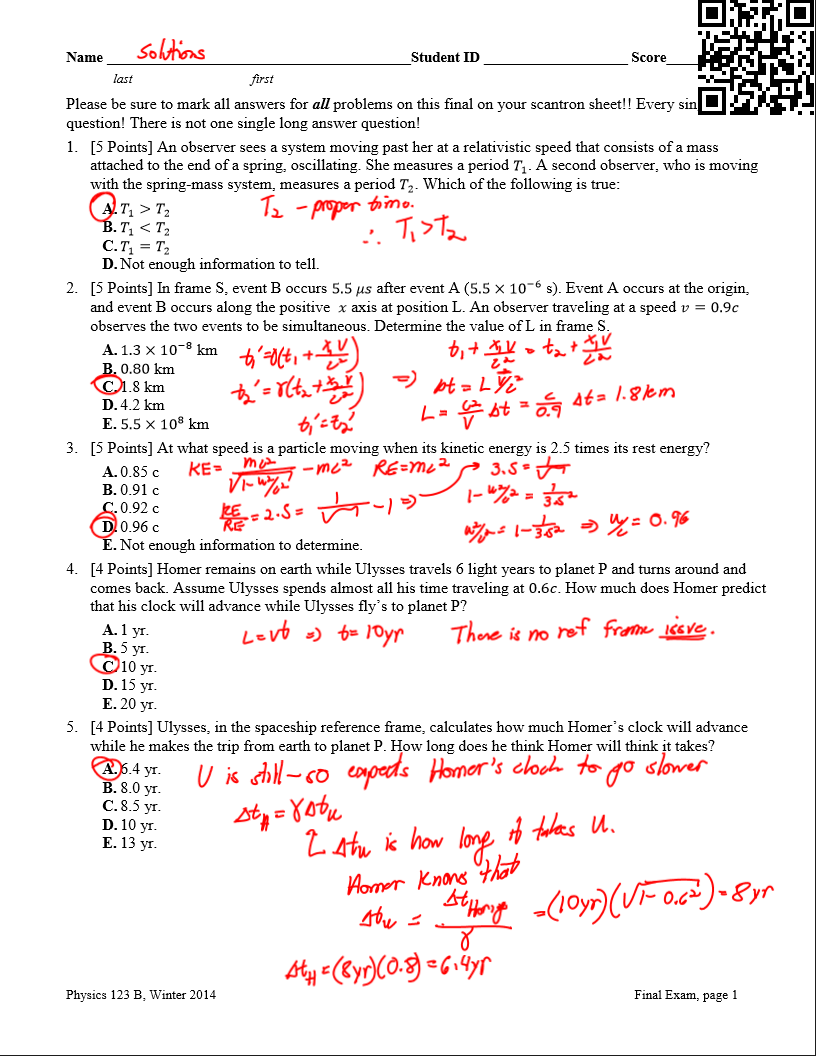 Name Solutions Student ID Score
last first
Please be sure to mark all answers for all problems on this final on your scantron sheet!! Every sin
question! There is not one single long answer question!
1. [5 Points] An observer sees a system moving past her at a relativistic speed that consists of a mass
attached to the end of a spring, oscillating. She measures a period T₁. A second observer, who is moving
with the spring-mass system, measures a period T₂. Which of the following is true:
A. T₁ > T₂
B. T₁ < T₂
C. T₁ = T₂
D. Not enough information to tell.
T₂ – proper time.
∴ T₁>T₂
2. [5 Points] In frame S, event B occurs 5.5 μs after event A (5.5 × 10⁻⁶ s). Event A occurs at the origin,
and event B occurs along the positive x axis at position L. An observer traveling at a speed v = 0.9c
observes the two events to be simultaneous. Determine the value of L in frame S.
A. 1.3 × 10⁻⁸ km
B. 0.80 km
C. 1.8 km
D. 4.2 km
E. 5.5 × 10⁸ km
t₁' = γ(t₁ + x₁V/c²)
t₂' = γ(t₂ + x₂V/c²) ⇒
t₁' = t₂'
t₁ + x₁V/c² = t₂ + x₁V/c²
Δt = L V/c²
L = c²/V Δt = c/0.9 Δt = 1.8km
3. [5 Points] At what speed is a particle moving when its kinetic energy is 2.5 times its rest energy?
A. 0.85 c
B. 0.91 c
C. 0.92 c
D. 0.96 c
E. Not enough information to determine.
KE = mc²/√1-u²/c² - mc² RE=mc²
KE/RE = 2.5 = 1/√ - 1 ⇒
3.5 = 1/√
1 - u²/c² = 1/3.5²
u²/c² = 1 - 1/3.5² ⇒ u/c = 0.96
4. [4 Points] Homer remains on earth while Ulysses travels 6 light years to planet P and turns around and
comes back. Assume Ulysses spends almost all his time traveling at 0.6c. How much does Homer predict
that his clock will advance while Ulysses fly’s to planet P?
A. 1 yr.
B. 5 yr.
C. 10 yr.
D. 15 yr.
E. 20 yr.
L=vt ⇒ t= 10yr There is no ref frame issue.
5. [4 Points] Ulysses, in the spaceship reference frame, calculates how much Homer’s clock will advance
while he makes the trip from earth to planet P. How long does he think Homer will think it takes?
A. 6.4 yr.
B. 8.0 yr.
C. 8.5 yr.
D. 10 yr.
E. 13 yr.
U is still – so expects Homer's clock to go slower
Δt_H = γΔt_U
↑ Δt_U is how long it takes U.
Homer knows that
Δt_U = Δt_Homer/γ = (10yr)(√1-0.6²) = 8yr
Δt_H = (8yr)(0.8) = 6.4yr
Physics 123 B, Winter 2014 Final Exam, page 1